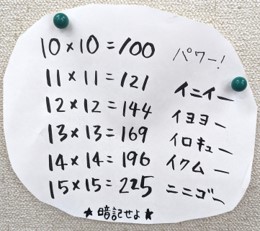 10×10=100 パワー!
11×11=121 イニイー
12×12=144 イヨヨー
13×13=169 イロキュー
14×14=196 イクムー
15×15=225 ニニゴー
★暗記せよ★